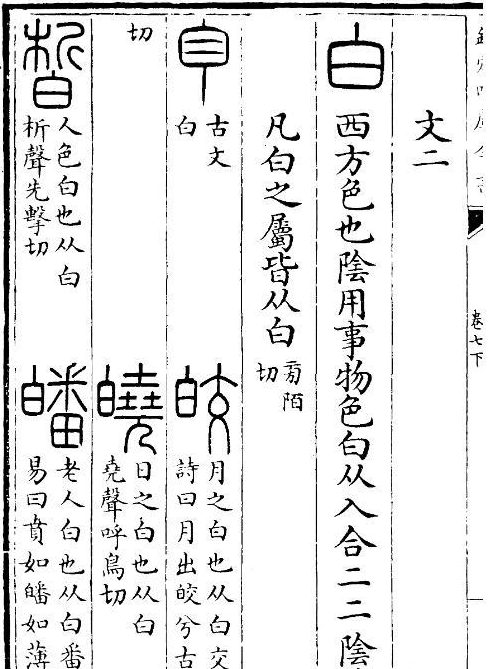 卷七下
文二
白 西方色也陰用事物色白从入合二二陰
凡白之屬皆从白 旁陌
切
古文
白
皎 月之白也从白交
詩曰月出皎兮古
切
皢 日之白也从白
堯聲呼鳥切
晳 人色白也从白
析聲先擊切
皤 老人白也从白番
易曰賁如皤如薄